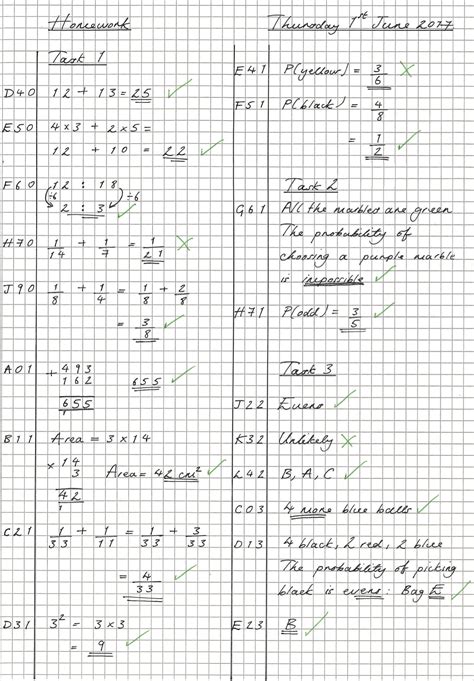 Homework
Thursday 1st June 2017
Task 1
D40 12 + 13 = 25
E50 4×3 + 2×5 =
12 + 10 = 22
F60 12 : 18
÷6 ÷6
2 : 3
H70 1/14 + 1/7 = 1/21
J90 1/8 + 1/4 = 1/8 + 2/8
= 3/8
A01 + 493
162 655
655
1
B11 Area = 3 × 14
× 14
3 Area = 42 cm²
42
1
C21 1/33 + 1/11 = 1/33 + 3/33
= 4/33
D31 3² = 3 × 3
= 9
E41 P(yellow) = 3/6
F51 P(black) = 4/8
= 1/2
Task 2
G61 All the marbles are green
The probability of
choosing a purple marble
is impossible
H71 P(odd) = 3/5
Task 3
J22 Evens
K32 Unlikely
L42 B, A, C
C03 4 more blue balls
D13 4 black, 2 red, 2 blue
The probability of picking
black is evens: Bag E
E23 B